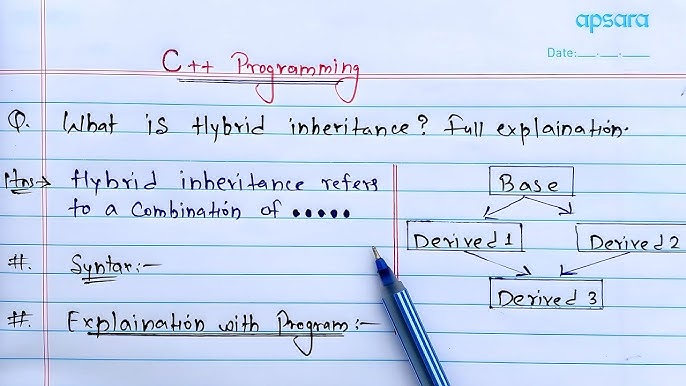 apsara
Date:
C++ Programming
Q. What is Hybrid inheritance? Full explaination.
Ans→ Hybrid inheritance refers
to a Combination of •••••
#. Syntax:-
#. Explaination with Program:-
Base
Derived 1
Derived 2
Derived 3